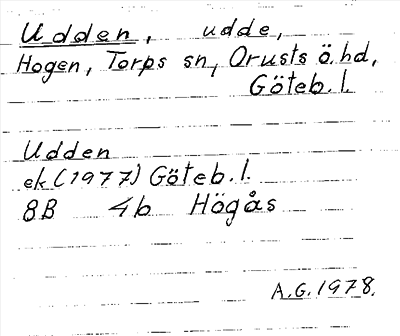 Udden, udde,
Hogen, Torps sn, Orusts ö. hd,
Göteb. l.
Udden
ek (1977) Göteb. l.
8B 4b Högås
A.G. 1978.